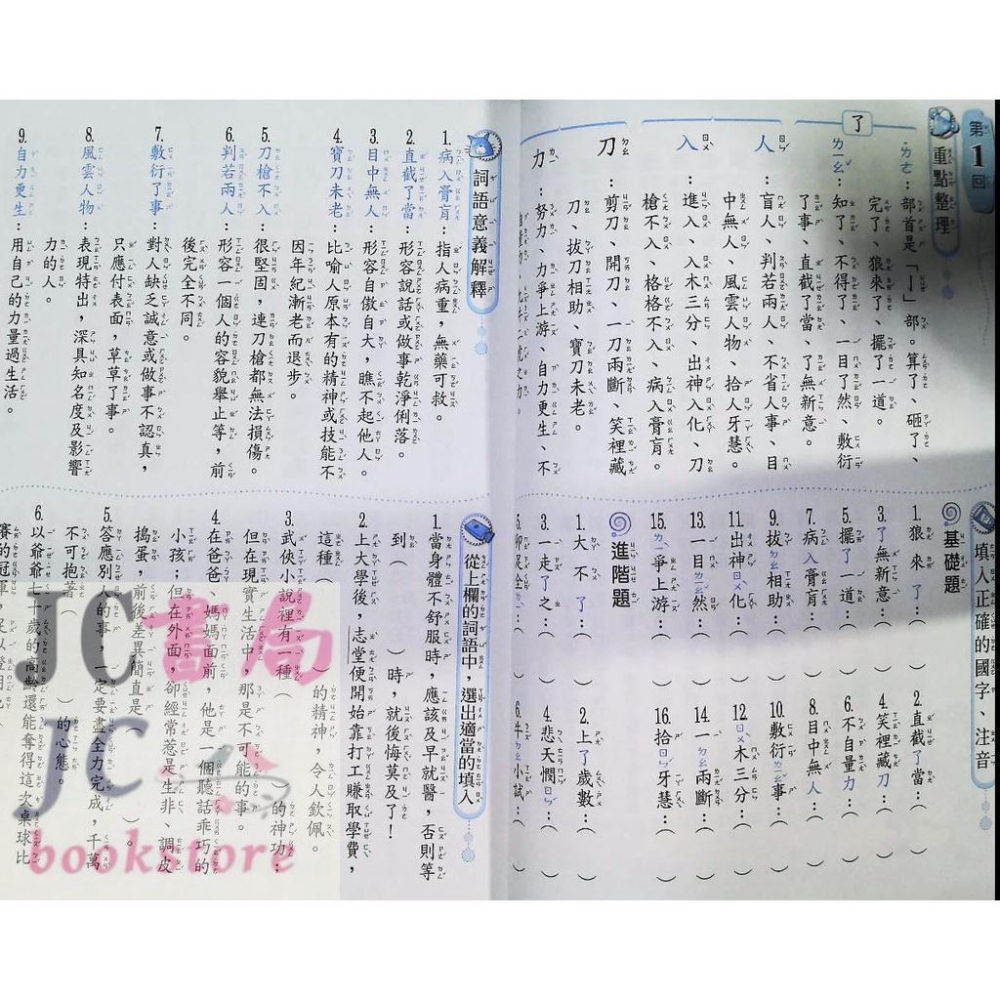 第1回
重點整理
了
ㄌㄜ˙：部首是「亅」部。算了、砸了、
完了、狼來了、擺了一道。
ㄌㄧㄠˇ：知了、不得了、一目了然、敷衍
了事、直截了當、了無新意。
人ㄖㄣˊ：盲人、判若兩人、不省人事、目
中無人、風雲人物、拾人牙慧。
入ㄖㄨˋ：進入、入木三分、出神入化、刀
槍不入、格格不入、病入膏肓。
刀ㄉㄠ：剪刀、開刀、一刀兩斷、笑裡藏
刀、拔刀相助、寶刀未老。
力ㄌㄧˋ：努力、力爭上游、自力更生、不
填入正確的國字、注音
基礎題
1.狼來了：（　）
2.直截了當：（　）
3.了無新意：（　）
4.笑裡藏刀：（　）
5.擺了一道：（　）
6.不自量力：（　）
7.病入膏肓：（　）
8.目中無人：（　）
9.拔ㄉㄠ相助：（　）
10.敷衍ㄌㄧㄠˇ事：（　）
11.出神ㄖㄨˋ化：（　）
12.ㄖㄨˋ木三分：（　）
13.一目ㄌㄧㄠˇ然：（　）
14.一ㄉㄠ兩斷：（　）
15.ㄌㄧˋ爭上游：（　）
16.拾ㄖㄣˊ牙慧：（　）
進階題
1.大不了：（　）
2.上了歲數：（　）
3.一走了之：（　）
4.悲天憫ㄖㄣˊ：（　）
6.牛ㄉㄠ小試：（　）
詞語意義解釋
1.病入膏肓：指人病重，無藥可救。
2.直截了當：形容說話或做事乾淨俐落。
3.目中無人：形容自傲自大，瞧不起他人。
4.寶刀未老：比喻人原本有的精神或技能不
因年紀漸老而退步。
5.刀槍不入：很堅固，連刀槍都無法損傷。
6.判若兩人：形容一個人的容貌舉止等，前
後完全不同。
7.敷衍了事：對人缺乏誠意或做事不認真，
只應付表面，草草了事。
8.風雲人物：表現特出，深具知名度及影響
力的人。
9.自力更生：用自己的力量過生活。
從上欄的詞語中，選出適當的填入
1.當身體不舒服時，應該及早就醫，否則等
到（　）時，就後悔莫及了！
2.上大學後，志堂便開始靠打工賺取學費，
這種（　）的精神，令人欽佩。
3.武俠小說裡有一種（　）的神功；
但在現實生活中，那是不可能的事。
4.在爸爸、媽媽面前，他是一個聽話乖巧的
小孩；但在外面，卻經常惹是生非、調皮
搗蛋，前後差異簡直是（　）。
5.答應別人的事，一定要盡全力完成，千萬
不可抱著（　）的心態。
6.以爺爺七十歲的高齡還能奪得這次桌球比
JC書局
JC
bookstore